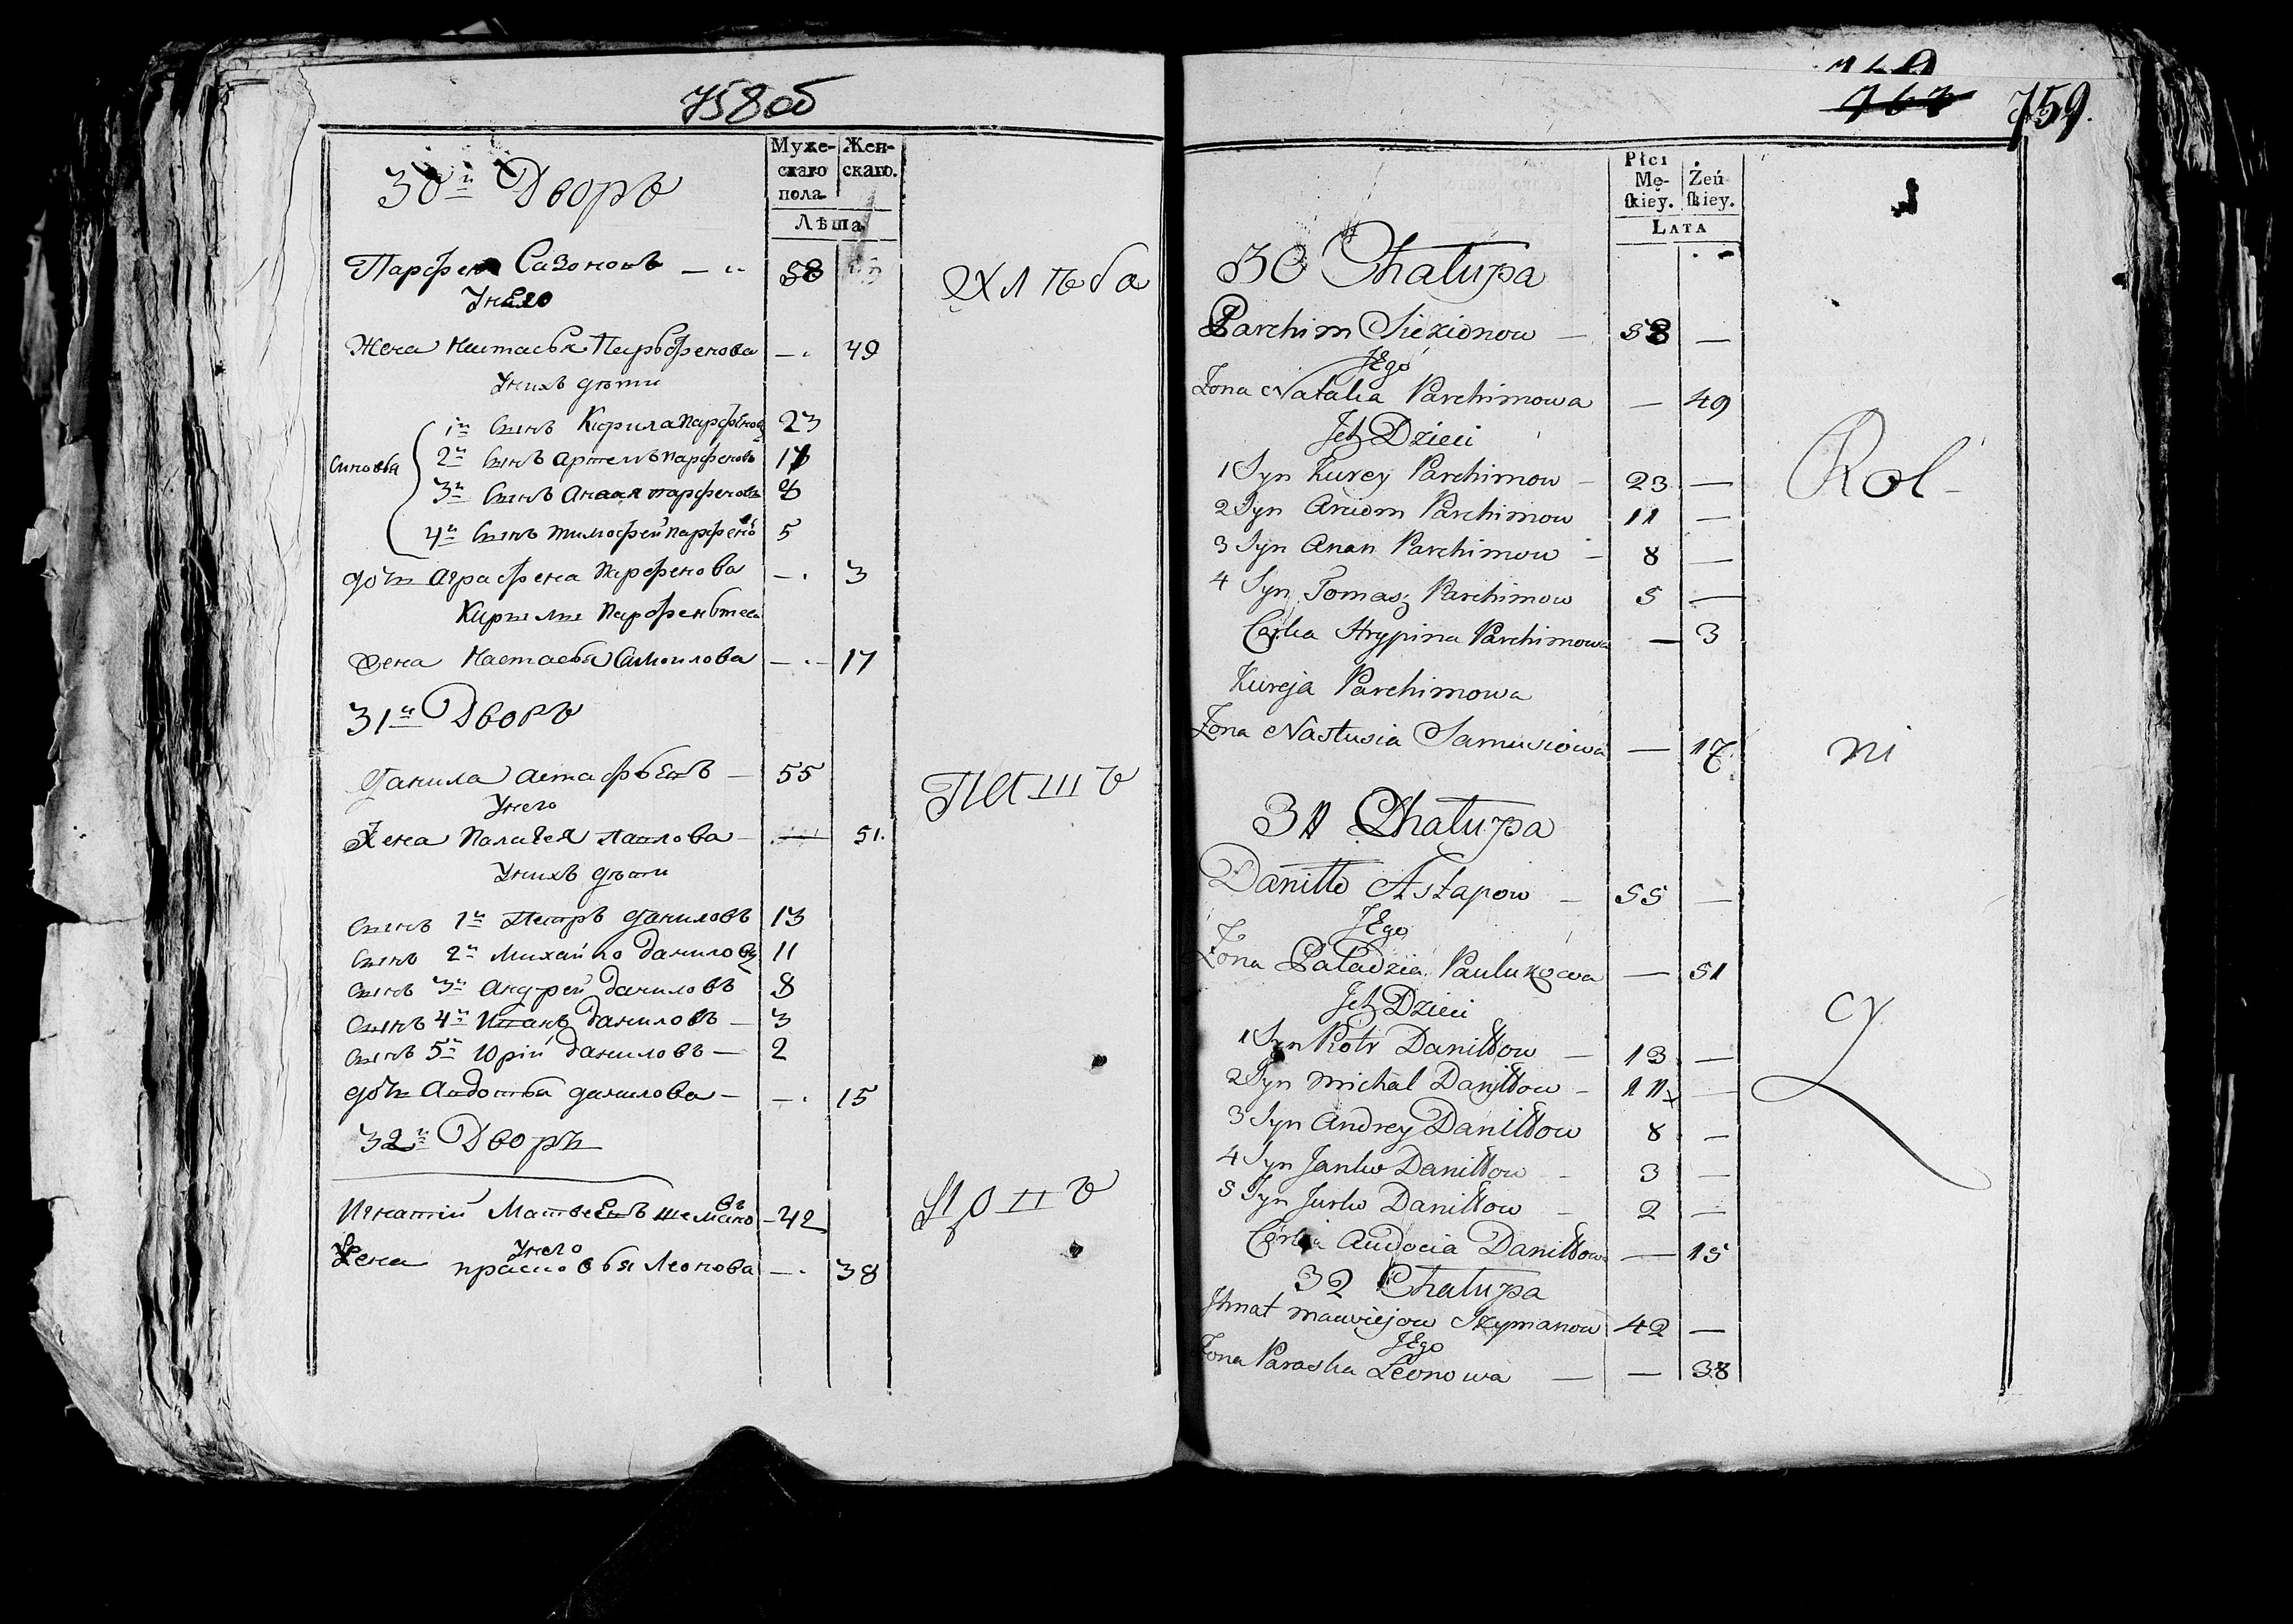 758об
Муже-
скаго
пола
Жен-
скаго.
Лѣта
30й Дворъ
Парфенъ Сазоновъ — 58
У него
Жена Настасья Парьфенова — 49
У нихъ дѣти
Синовья
1й Сынъ Кирила парфенов 23
2й Сынъ Артемъ парфеновъ
3й Сынъ Анания парфеновъ 8
4й Сынъ тимофей парфеновъ 5
дочь Аграфена парфенова — 3
Кирылы парфеньтева
Жена Настасья Самоилова — 17
31й Дворъ
Данила Астафьевъ — 55
У него
Жена Палагея Павлова — 51.
У нихъ дѣти
Сынъ 1й Петръ Даниловъ 13
Сынъ 2й Михайло Даниловъ 11
Сынъ 3й Андрей Даниловъ 8
Сынъ 4й Иванъ Даниловъ — 3
Сынъ 5й Юрій Даниловъ — 2
дочь Авдотья данилова — 15
32й Дворъ
Игнатій Матвеевъ шемановъ — 42
У него
Жена прасковья Леонова — 38
ХЛѣба
ПАШЪ
ЦОІІЪ
763
759.
Płci
Mę-
skiey.
Żeń-
skiey.
LATA
30 Chatupa
Parchim Siezionow — 58 —
JEgo
Żona Natalia Parchimowa — 49
Jch Dzieci
1 Syn Kurey Parchimow — 23 —
2 Syn Arciom Parchimow 11 —
3 Syn Anan Parchimow — 8 —
4 Syn Tomasz Parchimow 5 —
Corka Hrypina Parchimowa — 3
Kureja Parchimowa
Żona Nastusia Samusiowa — 17
31 Chatupa
Daniłło Astapow — 55 —
JEgo
Żona Paładzia Paulukowa — 51
Jch Dzieci
1 Syn Piotr Daniłłow — 13 —
2 Syn Michał Daniłłow — 11 —
3 Syn Andrey Daniłłow 8 —
4 Syn Janko Daniłłow — 3 —
5 Syn Jurko Daniłłow — 2 —
Corka Audocia Daniłłowa — 15
32 Chatupa
Jhnat Mawiejow Szymanow 42 —
JEgo
Żona Paraska Leonowa — — 38
Rol-
ni
cy